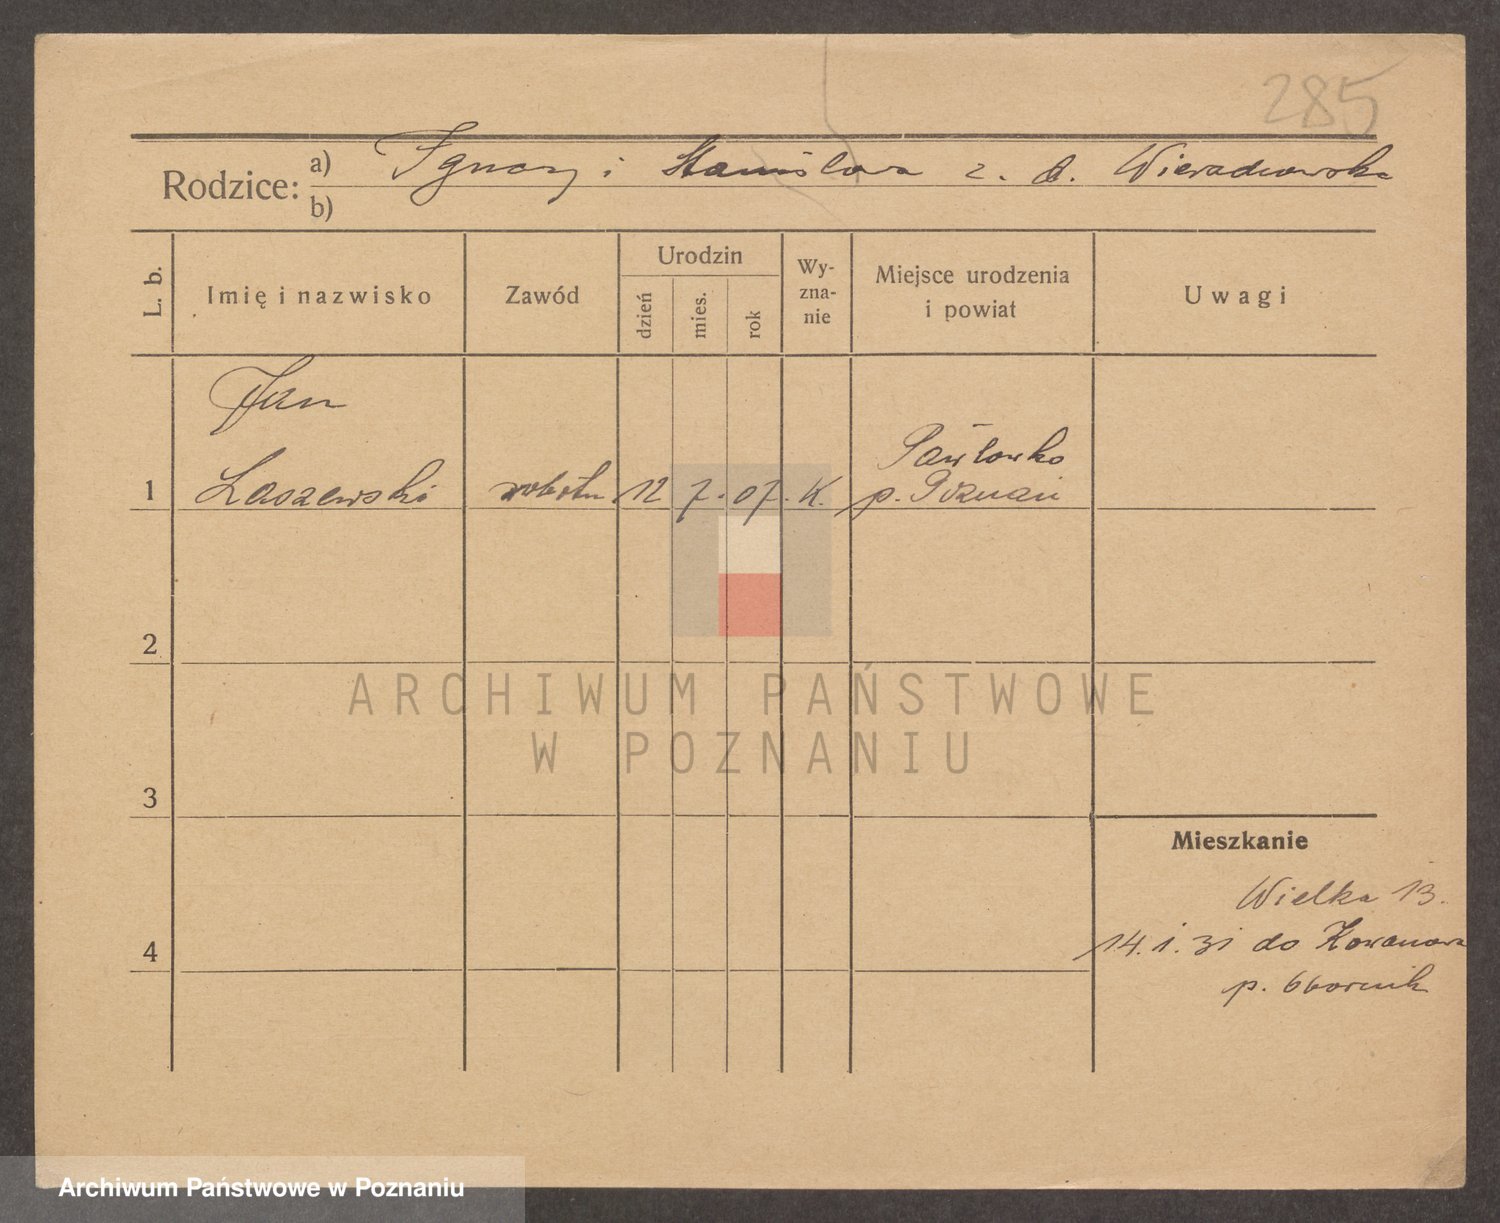 285
Rodzice: a) Ignacy i Stanisława z. d.
b)
L. b.
Imię i nazwisko
Zawód
Urodzin
dzień
mies.
rok
Wy-
zna-
nie
Miejsce urodzenia
i powiat
Uwagi
Jan
Laszewski
1 robotn. 12 7. 07. K.
Pawłowko
p. Poznań
2
3
4
Mieszkanie
Wielka 13.
14. 1. 31 do Kowanowa
p. Obornik
ARCHIWUM PAŃSTWOWE
W POZNANIU
Archiwum Państwowe w Poznaniu